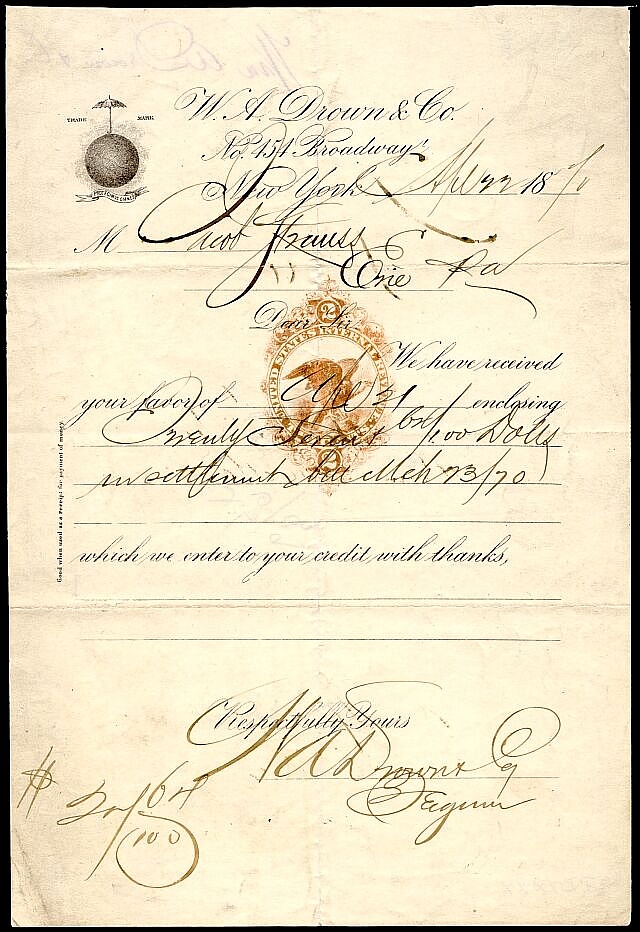 TRADE MARK
W. A. Drown & Co.
No. 154 Broadway
New York Apl 22 1870
M Jacob Strauss
Erie Pa
Dear Sir
We have received
your favor of Apl 21 enclosing
Twenty Seven 64/100 Dolls
in settlement bill Mch 23/70
which we enter to your credit with thanks,
Good when used as a receipt for payment of money.
UNITED STATES INTERNAL REVENUE
2
2
Respectfully Yours
W A Drown & Co
$ 64/100